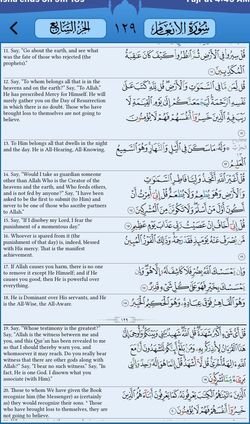 سُورَةُ الْأَنْعَامِ
١٢٩
الجُزْءُ السَّابِعُ
11. Say, "Go about the earth, and see what
was the fate of those who rejected (the
prophets)".
قُلْ سِيرُوا فِي الْأَرْضِ ثُمَّ انْظُرُوا كَيْفَ كَانَ عَاقِبَةُ
الْمُكَذِّبِينَ
12. Say, "To whom belongs all that is in the
heavens and on the earth?" Say, "To Allah."
He has prescribed Mercy for Himself. He will
surely gather you on the Day of Resurrection
in which there is no doubt. Those who have
brought loss to themselves are not going to
believe.
قُلْ لِمَنْ مَا فِي السَّمَاوَاتِ وَالْأَرْضِ قُلْ لِلَّهِ كَتَبَ عَلَىٰ
نَفْسِهِ الرَّحْمَةَ لَيَجْمَعَنَّكُمْ إِلَىٰ يَوْمِ الْقِيَامَةِ لَا
رَيْبَ فِيهِ الَّذِينَ خَسِرُوا أَنْفُسَهُمْ فَهُمْ لَا يُؤْمِنُونَ
13. To Him belongs all that dwells in the night
and the day. He is All-Hearing, All-Knowing.
وَلَهُ مَا سَكَنَ فِي اللَّيْلِ وَالنَّهَارِ وَهُوَ السَّمِيعُ
الْعَلِيمُ
14. Say, "Would I take as guardian someone
other than Allah Who is the Creator of the
heavens and the earth, and Who feeds others,
and is not fed by anyone?" Say, "I have been
asked to be the first to submit (to Him) and
never to be one of those who ascribe partners
to Allah."
قُلْ أَغَيْرَ اللَّهِ أَتَّخِذُ وَلِيًّا فَاطِرِ السَّمَاوَاتِ
وَالْأَرْضِ وَهُوَ يُطْعِمُ وَلَا يُطْعَمُ قُلْ إِنِّي أُمِرْتُ أَنْ
أَكُونَ أَوَّلَ مَنْ أَسْلَمَ وَلَا تَكُونَنَّ مِنَ الْمُشْرِكِينَ
15. Say, "If I disobey my Lord, I fear the
punishment of a momentous day."
قُلْ إِنِّي أَخَافُ إِنْ عَصَيْتُ رَبِّي عَذَابَ يَوْمٍ عَظِيمٍ ١٥
16. Whoever is spared from it (the
punishment of that day) is, indeed, blessed
with His mercy. That is the manifest
achievement.
مَنْ يُصْرَفْ عَنْهُ يَوْمَئِذٍ فَقَدْ رَحِمَهُ وَذَٰلِكَ الْفَوْزُ الْمُبِينُ
17. If Allah causes you harm, there is no one
to remove it except He Himself; and if He
causes you good, then He is powerful over
everything.
وَإِنْ يَمْسَسْكَ اللَّهُ بِضُرٍّ فَلَا كَاشِفَ لَهُ إِلَّا هُوَ وَإِنْ
يَمْسَسْكَ بِخَيْرٍ فَهُوَ عَلَىٰ كُلِّ شَيْءٍ قَدِيرٌ
18. He is Dominant over His servants, and He
is the All-Wise, the All-Aware.
وَهُوَ الْقَاهِرُ فَوْقَ عِبَادِهِ وَهُوَ الْحَكِيمُ الْخَبِيرُ
١٢٩
19. Say, "Whose testimony is the greatest?"
Say, "Allah is the witness between me and
you, and this Qur'an has been revealed to me
so that I should thereby warn you, and
whomsoever it may reach. Do you really bear
witness that there are other gods along with
Allah?" Say, "I bear no such witness." Say, "In
fact, He is one God. I disown what you
associate (with Him)."
قُلْ أَيُّ شَيْءٍ أَكْبَرُ شَهَادَةً قُلِ اللَّهُ شَهِيدٌ بَيْنِي وَبَيْنَكُمْ
وَأُوحِيَ إِلَيَّ هَٰذَا الْقُرْآنُ لِأُنْذِرَكُمْ بِهِ وَمَنْ بَلَغَ أَئِنَّكُمْ لَتَشْهَدُونَ أَنَّ مَعَ
اللَّهِ آلِهَةً أُخْرَىٰ قُلْ لَا أَشْهَدُ قُلْ إِنَّمَا هُوَ إِلَٰهٌ وَاحِدٌ وَإِنَّنِي
بَرِيءٌ مِمَّا تُشْرِكُونَ
20. Those to whom We have given the Book
recognize him (the Messenger) as (certainly
as) they would recognize their sons. ' Those
who have brought loss to themselves, they are
not going to believe.
الَّذِينَ آتَيْنَاهُمُ الْكِتَابَ يَعْرِفُونَهُ كَمَا يَعْرِفُونَ أَبْنَاءَهُمُ الَّذِينَ
خَسِرُوا أَنْفُسَهُمْ فَهُمْ لَا يُؤْمِنُونَ